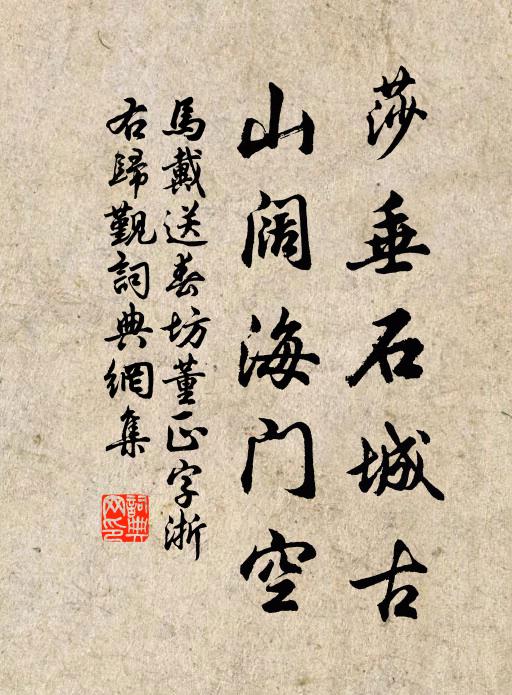 莎垂石城古
山阔海门空
馬戴送春坊董正字浙
右歸覲詞典網集
詞典网印